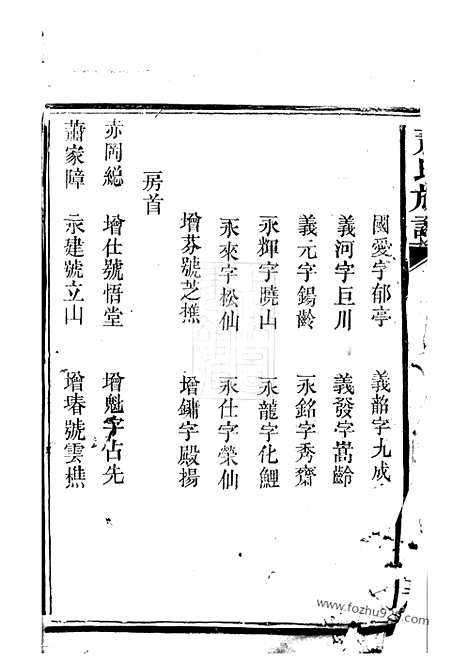 氏族譜
國愛字郁亭 義韶字九成
義河字巨川 義發字嵩齡
義元字錫齡 永銘字秀齋
永輝字曉山 永龍字化鯉
永來字松仙 永仕字榮仙
增芬號芝樵 增鏞字殿揚
房首
赤岡總 增仕號悟堂 增魁字占先
蕭家障 永建號立山 增春號雲樵
www.fozhu920.com